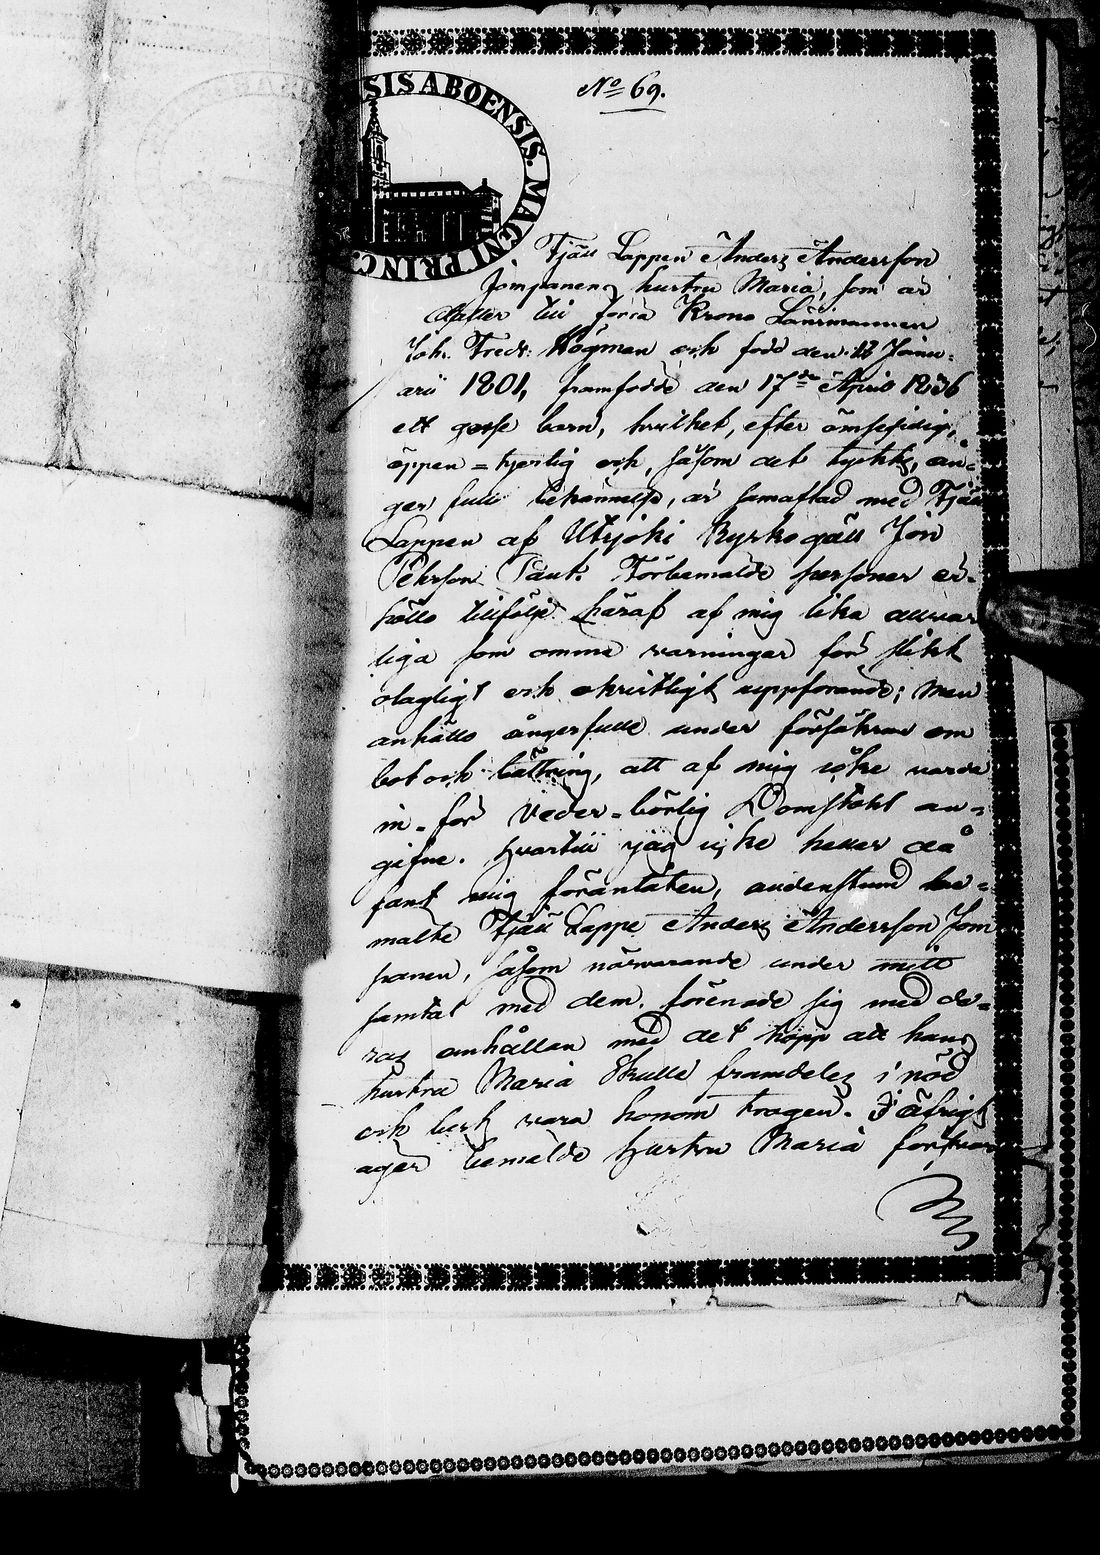 SIS ABOENSIS. MAGNI PRINC
No 69.
Fjäll Lappen Anders Andersson
Jompanens hustru Maria, som är
dotter till förra Krono Länsmannen
Joh. Fredr. Högman och född den 18 Janu-
arii 1801, framfödde den 17de April 1836
ett gosse barn, hvilket, efter ömsesidig,
öppen=hjertig och, såsom det tyckts, ån-
ger full bekännelse, är samaflad med Fjäll
Lappen af Utsjoki Kyrkogäll Jon
Pehrson Paut. Förbemälde personer er-
höllo tillfölje häraf af mig lika allvar
liga som omma varningar för slikt
olagligt och okristligt uppförande; men
anhöllo ångerfulle under försäkran om
bot och bättring, att af mig icke varda
in-för Veder-börlig Domstohl an-
gifne. Hvartill jag icke heller då
fant mig föranlåten, aldenstund be-
mälte Fjäll Lappe Anders Andersson Jom
panen, såsom närvarande under mitt
samtal med dem, förenade sig med de-
ras anhållan med det hopp att hans
hustru Maria skulle framdeles i nöd
och lust vara honom trogen. I öfrigt
äger bemälde hustru Maria